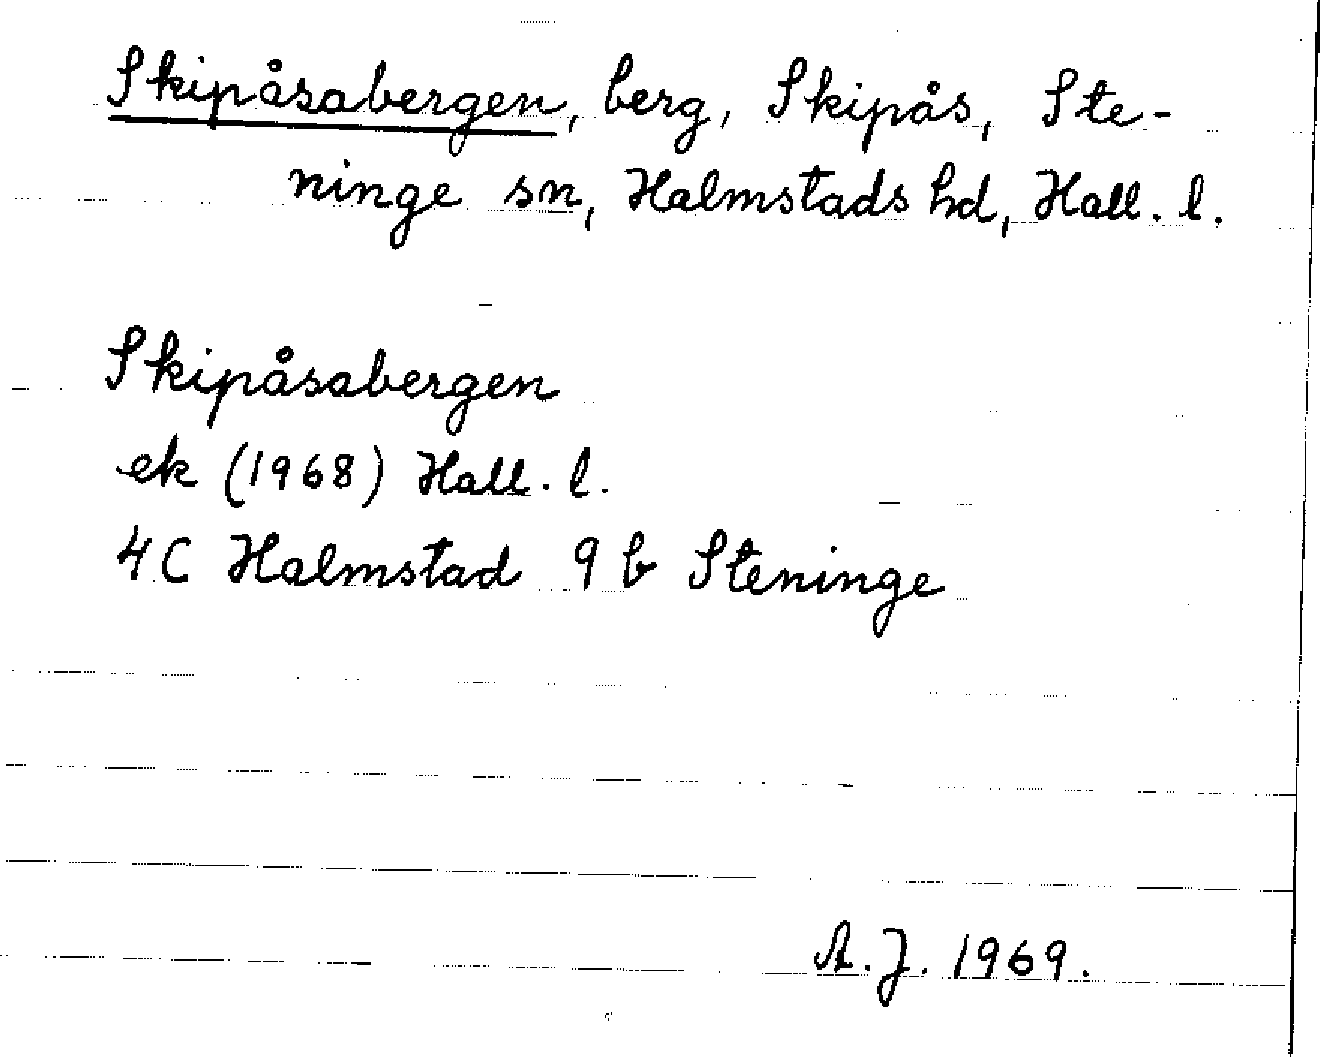 Skipåsabergen, berg, Skipås, Ste-
ninge sn, Halmstads hd, Hall. l.
Skipåsabergen
ek (1968) Hall. l.
4C Halmstad 9 b Steninge
A.J. 1969.